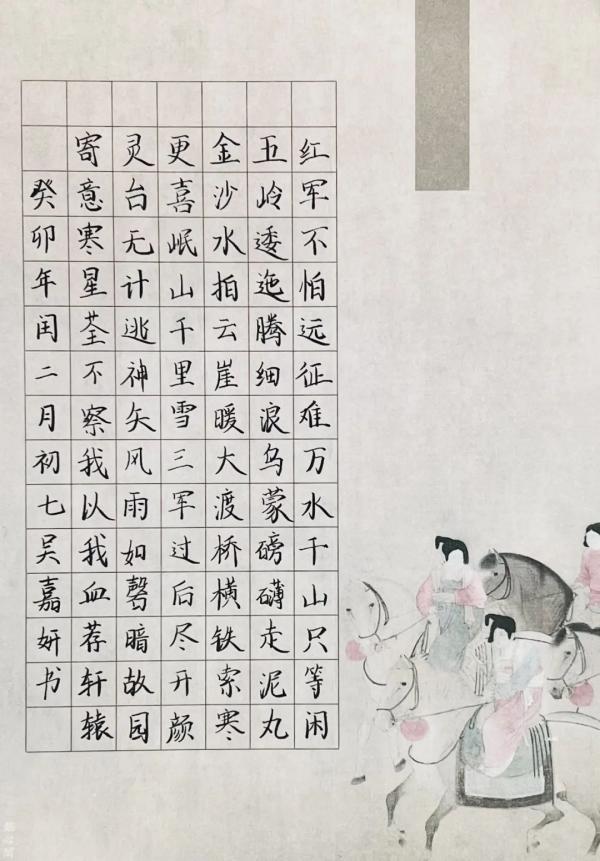 红军不怕远征难万水千山只等闲
五岭逶迤腾细浪乌蒙磅礴走泥丸
金沙水拍云崖暖大渡桥横铁索寒
更喜岷山千里雪三军过后尽开颜
灵台无计逃神矢风雨如磐暗故园
寄意寒星荃不察我以我血荐轩辕
癸卯年闰二月初七吴嘉妍书